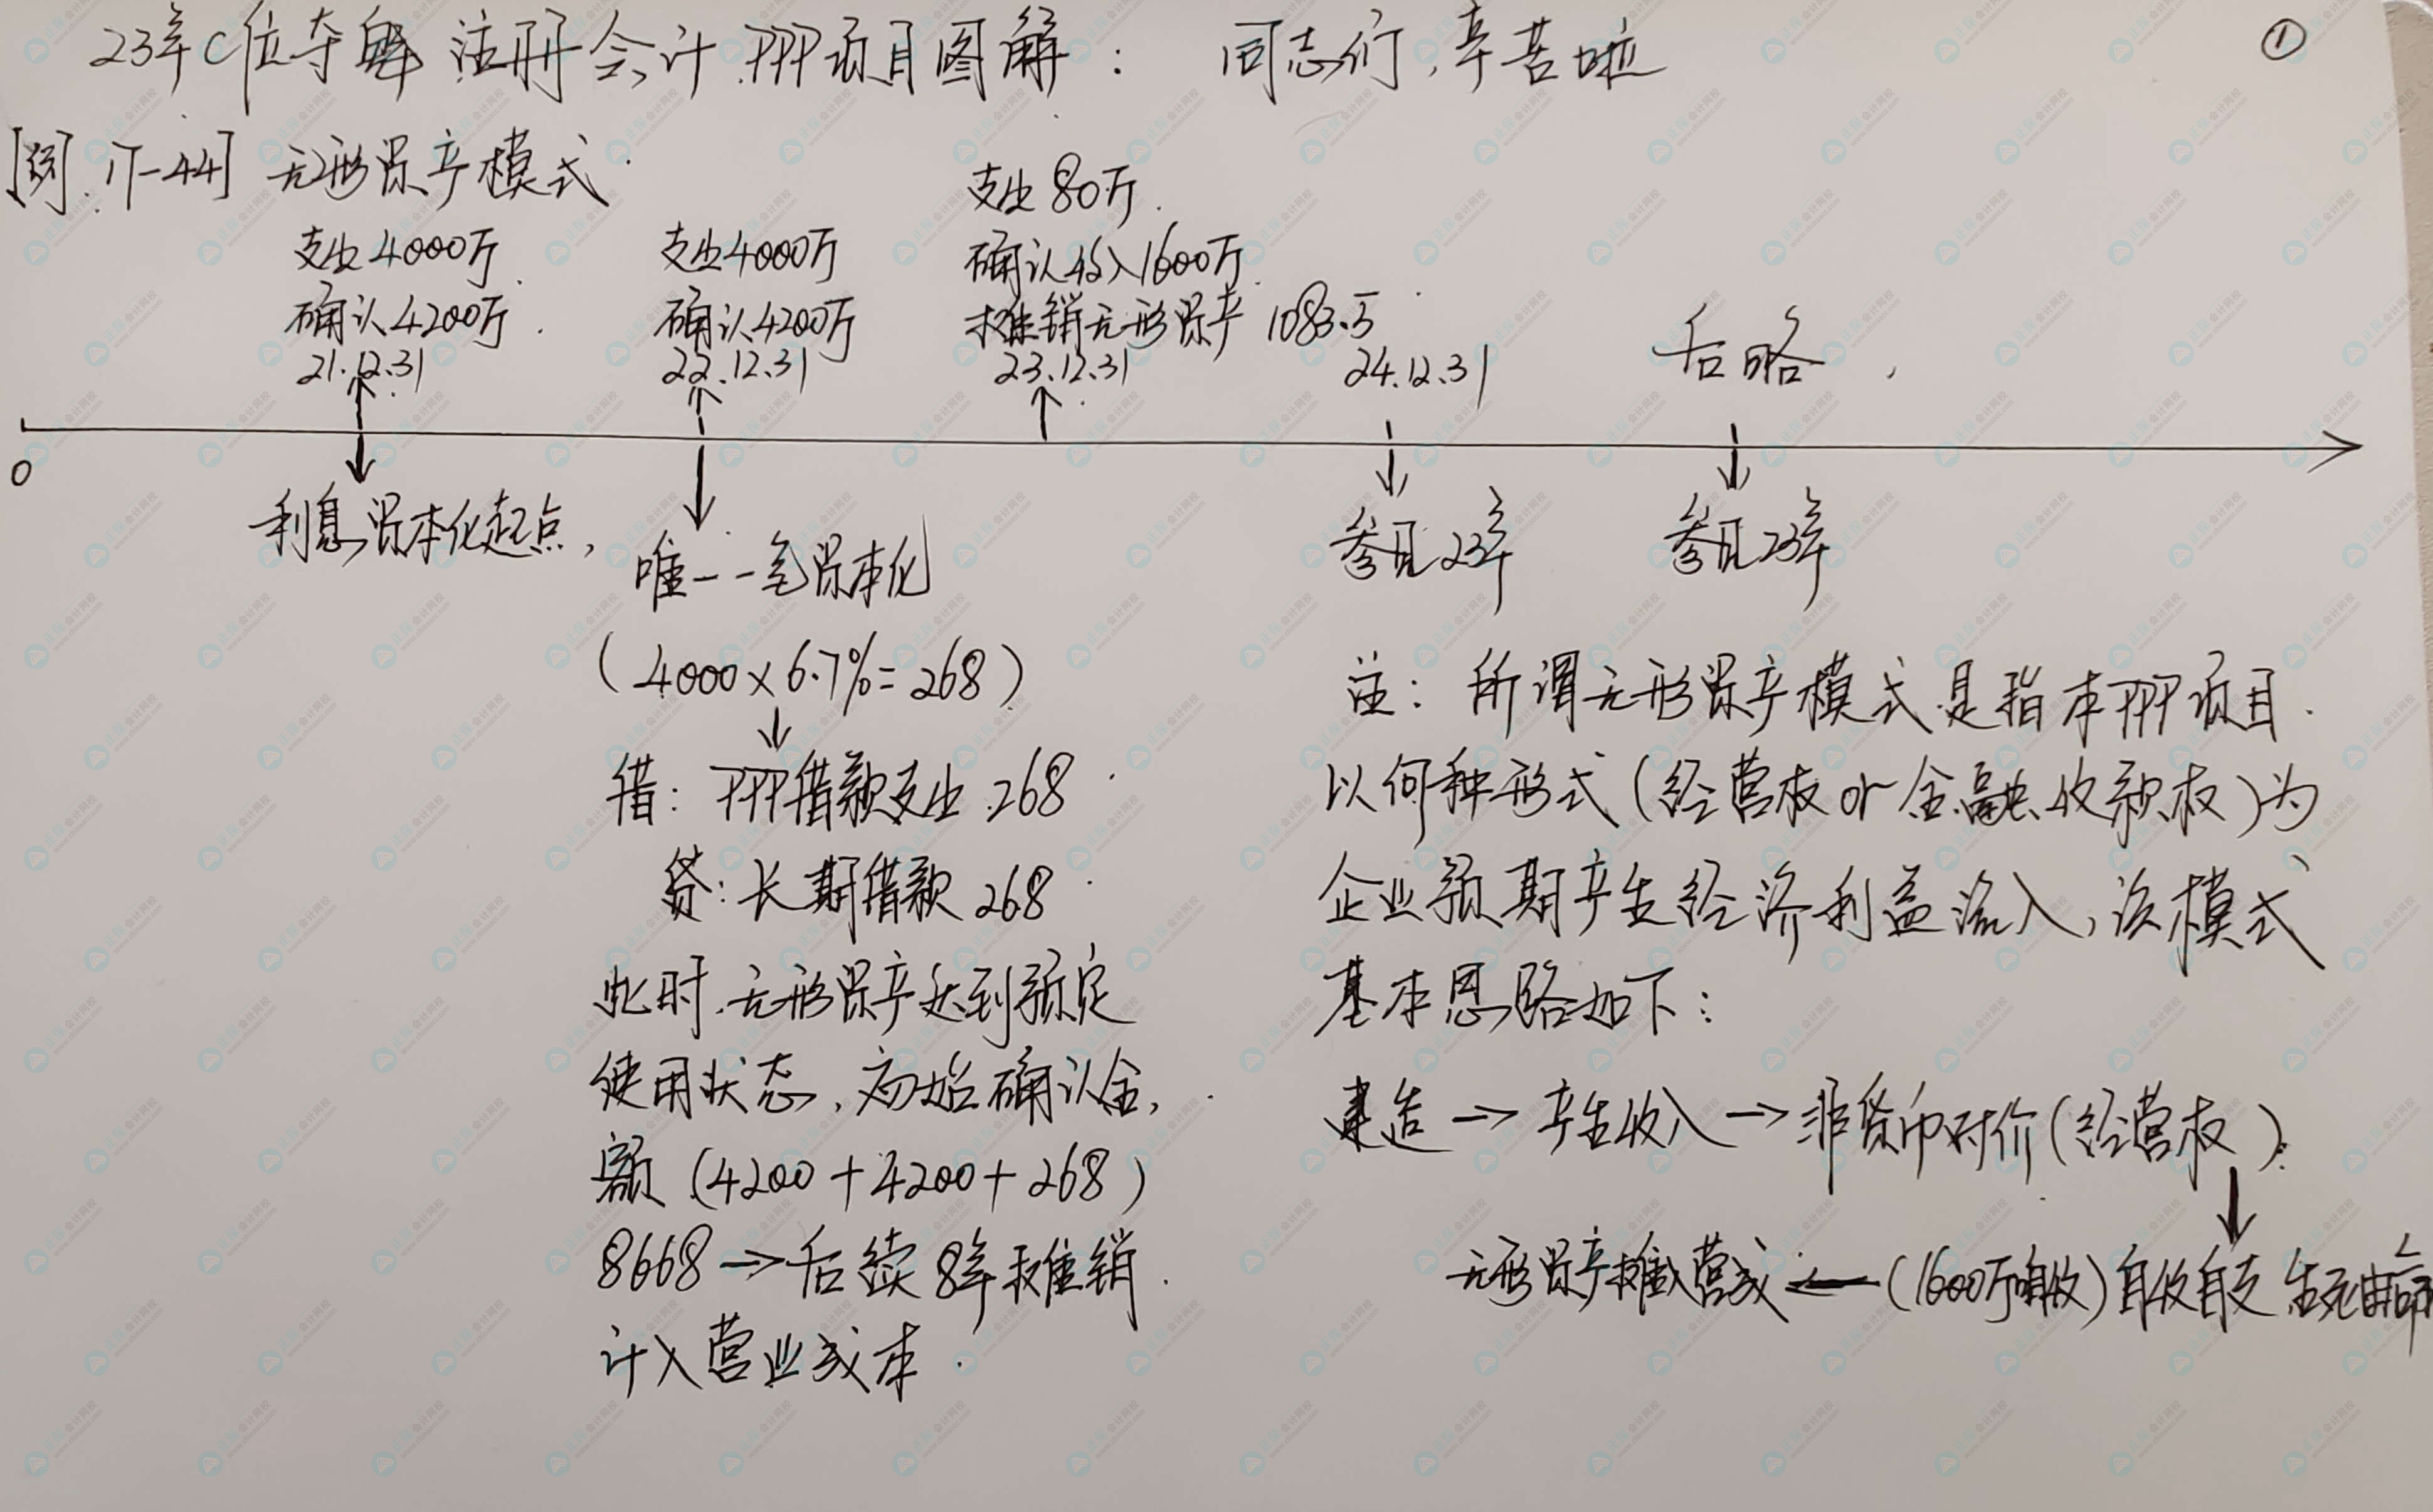 23年C位夺魁 注册会计 PPP项目图解： 同志们，辛苦啦
①
[例 17-44] 无形资产模式
支出80万
支出4000万
支出4000万
确认收入1600万
确认4200万
确认4200万
摊销无形资产 1083.5
21.12.31
22.12.31
23.12.31
24.12.31
后略
0
利息资本化起点，
唯一一笔资本化
参见23年
参见23年
(4000×6.7%=268)
借：PPP借款支出 268
贷：长期借款 268
此时，无形资产达到预定
使用状态，初始确认金
额 (4200+4200+268)
8668→后续8年摊销
计入营业成本
注：所谓无形资产模式是指本PPP项目
以何种形式(经营权or金融收款权)为
企业预期产生经济利益流入，该模式
基本思路如下：
建造→产生收入→非货币对价(经营权)
无形资产摊入营成←(1600万自收)自收自支，生死由命
正保会计网校
www.chinaacc.com